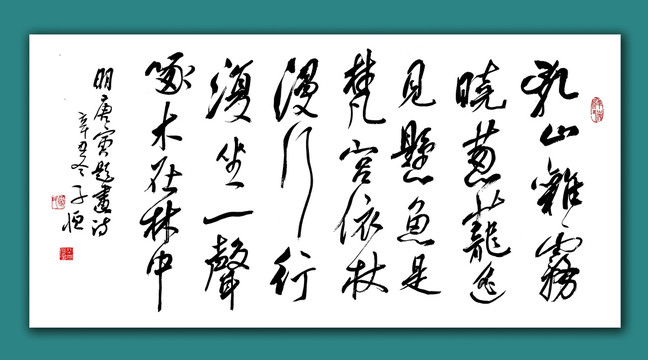 乱山離霧
曉葱蘢远
見懸魚是
梵宮依杖
漫行行
復坐一聲
啄木在林中
明唐寅題畫诗
辛丑冬子恒